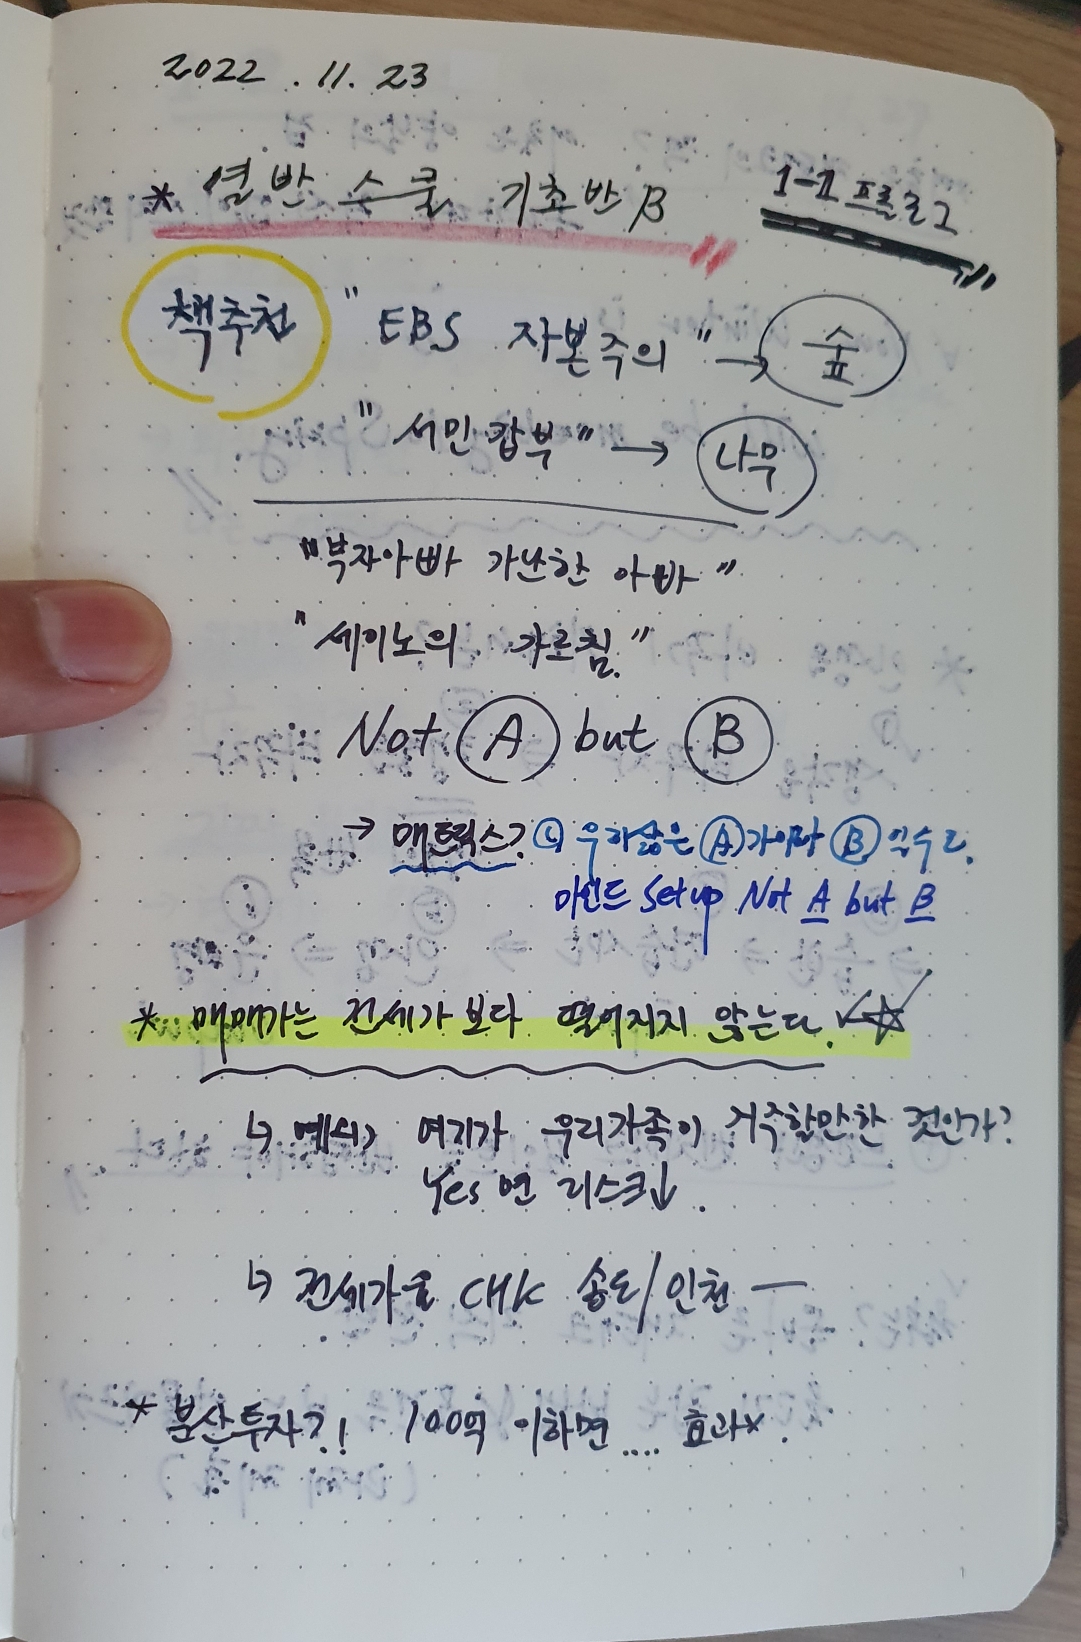 2022. 11. 23
* 열반 스쿨 기초반 β
1-1 프롤로그
책추천 "EBS 자본주의" → 숲
"서민갑부" → 나무
"부자아빠 가난한 아빠"
"세이노의 가르침."
Not A but B
→ 매트릭스? 우리삶은 A가아닌 B 일수도.
마인드 Set up Not A but B
* 매매가는 전세가보다 떨어지지 않는다. ✓☆
↳ 예시) 여기가 우리가족이 거주할만한 것인가?
Yes 면 리스크↓.
↳ 전세가율 CHK 송도/인천 —
* 분산투자?! 100억 이하면 .... 효과x.
1